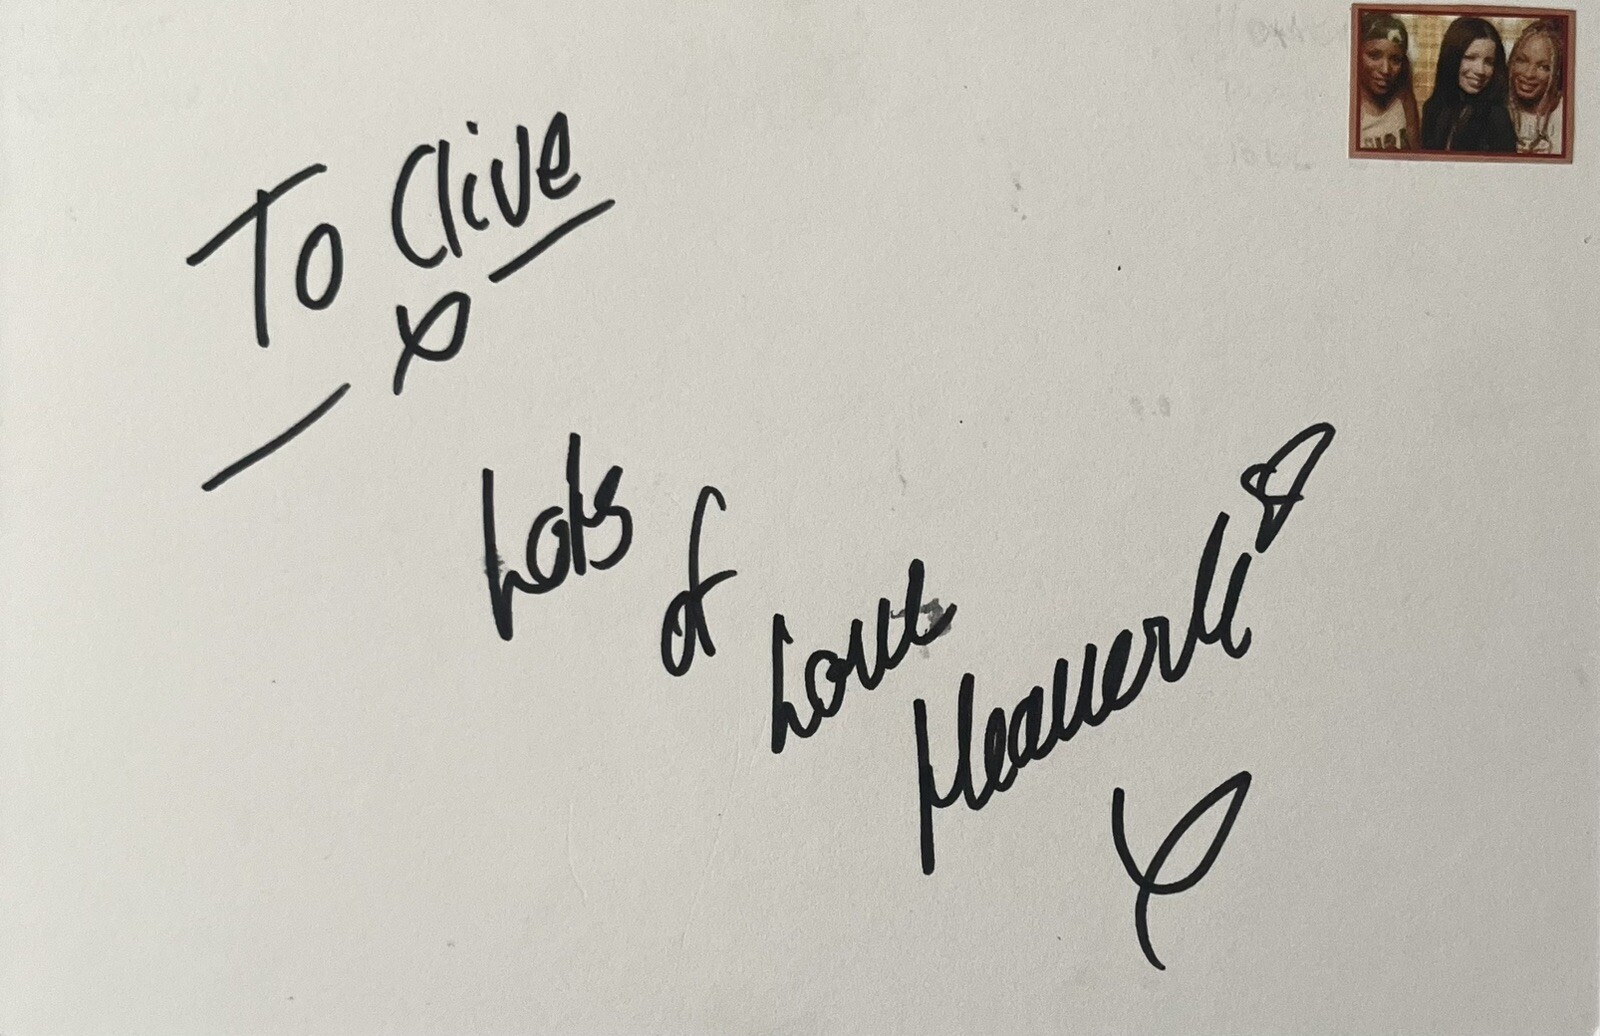 To Clive
x
Lots of Love
Heavenli
x